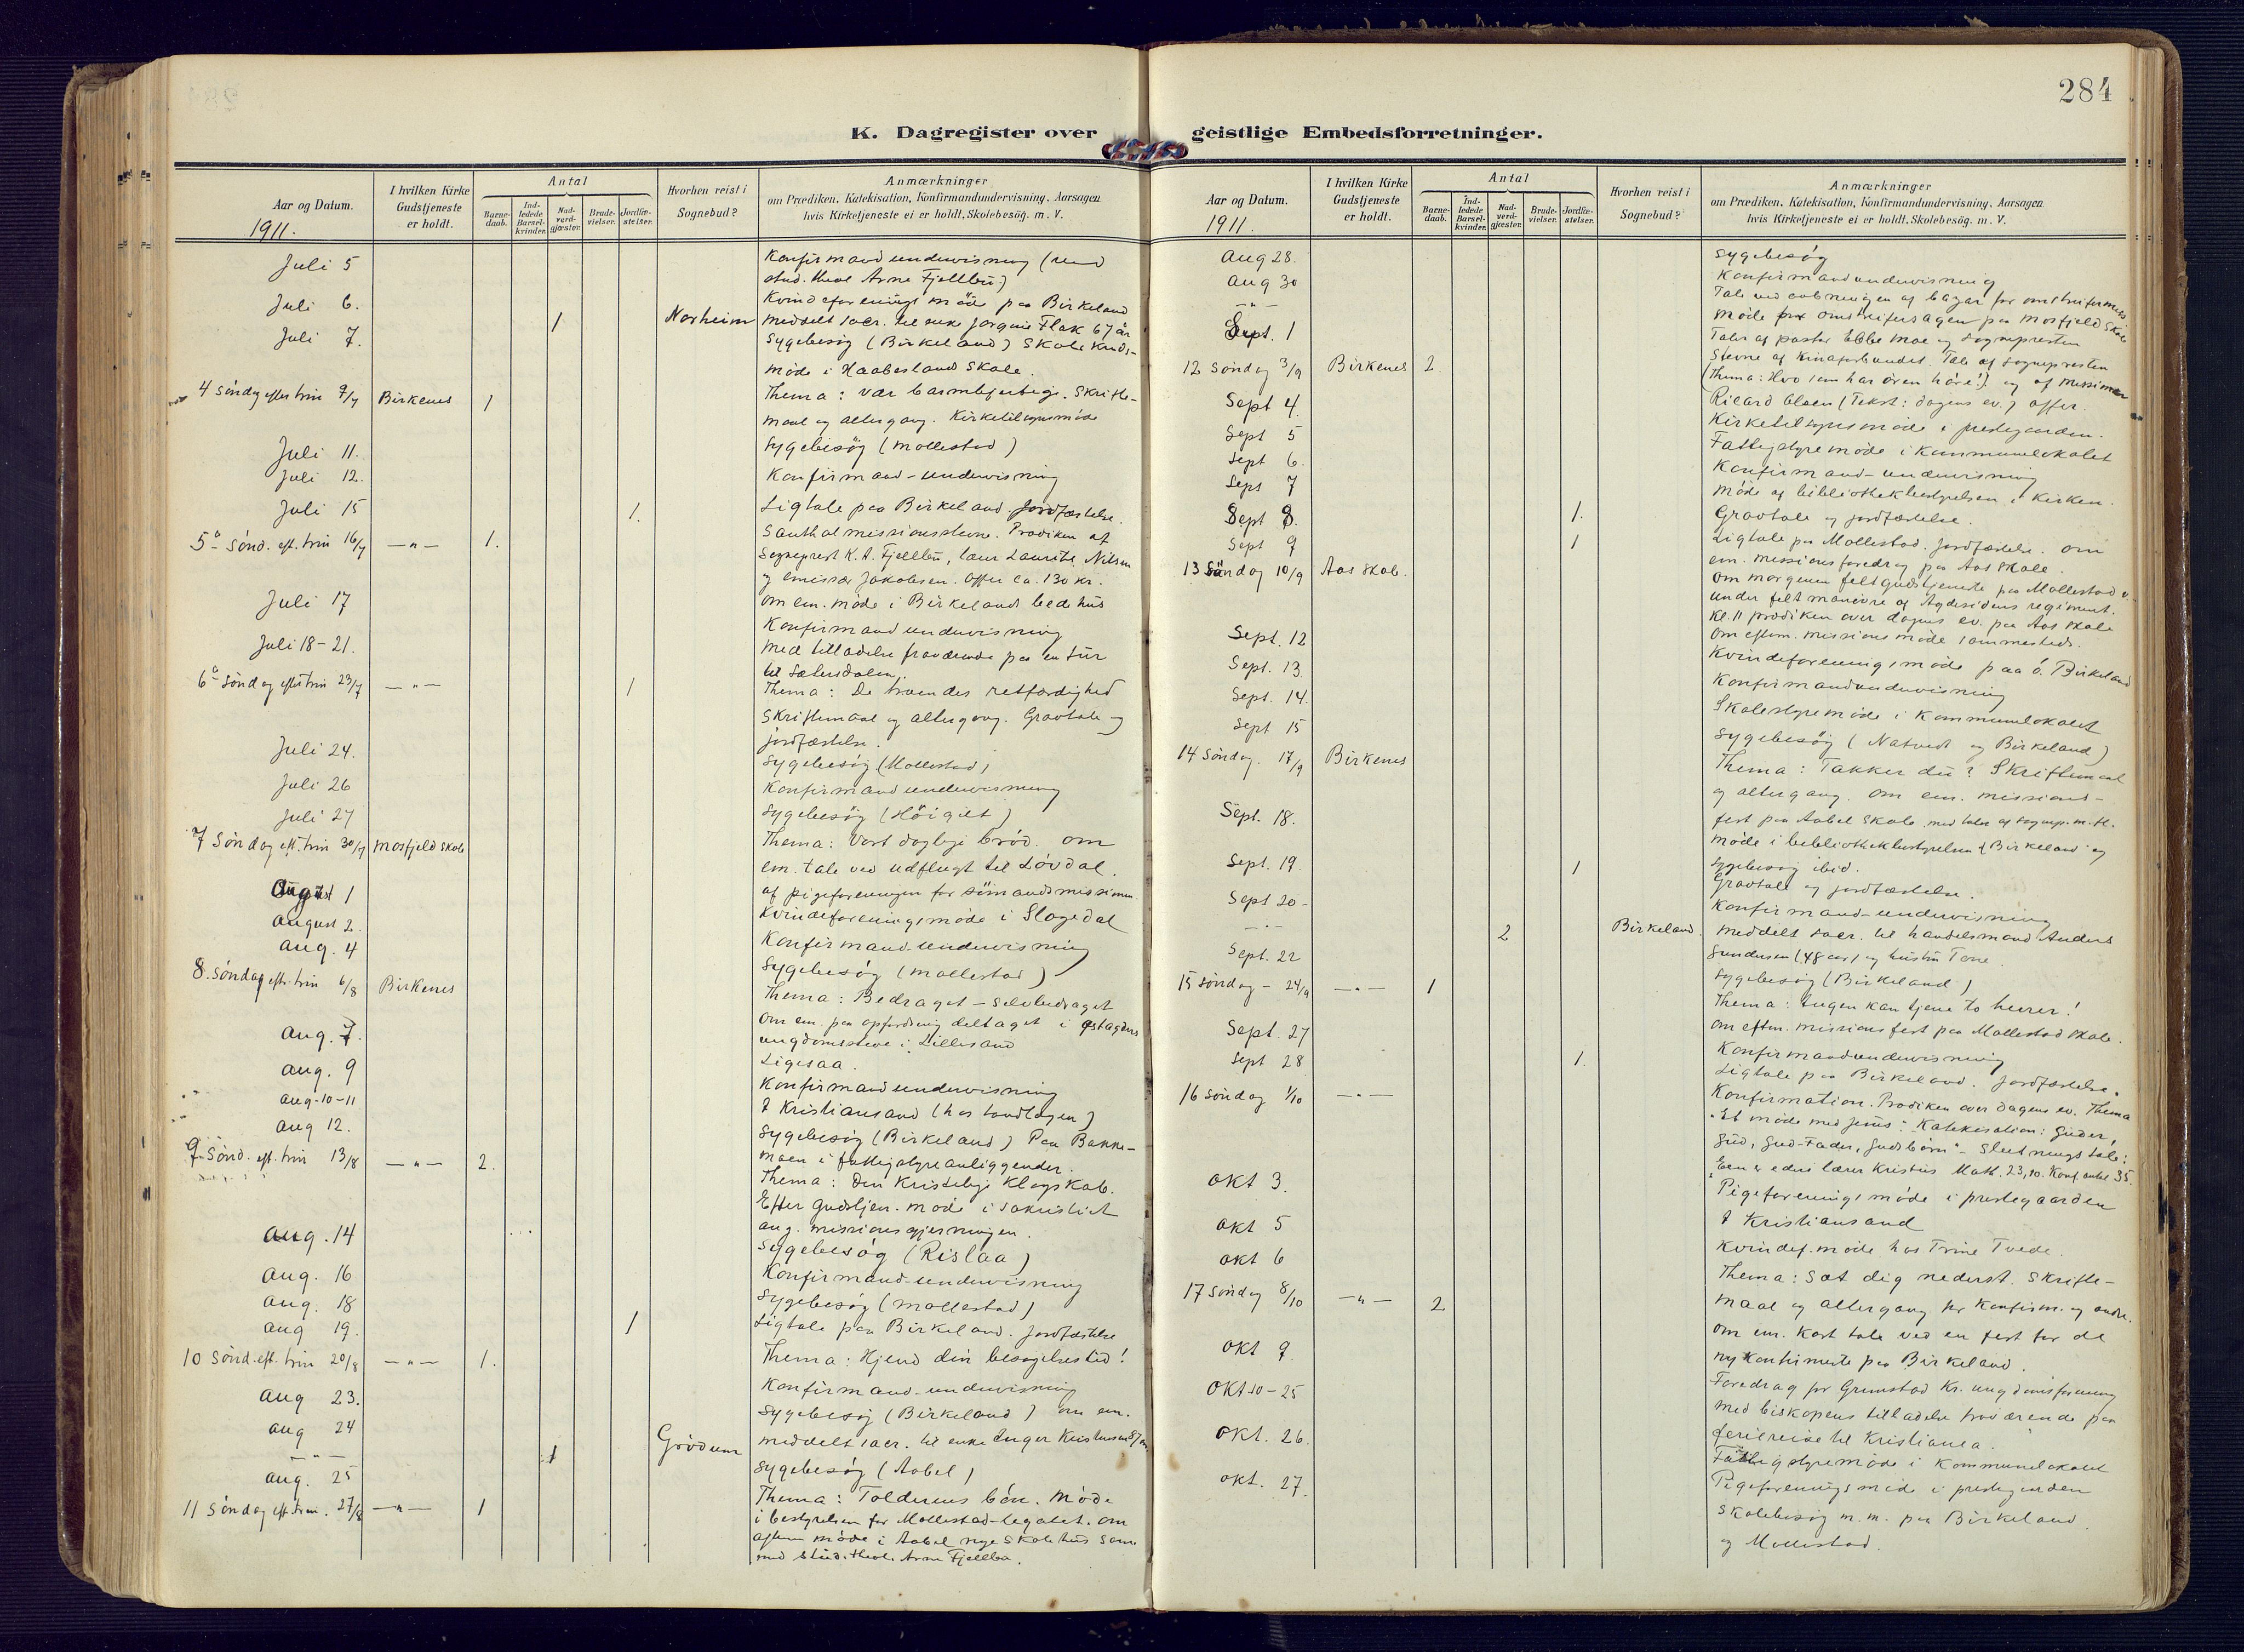 284
K. Dagregister over geistlige Embedsforretninger.
Aar og Datum.
1911.
I hvilken Kirke Gudstjeneste er holdt.
Antal
Barne-daab.
Ind-ledede Barsel-kvinder.
Nad-verd-gjæster.
Brude-vielser.
Jordfæ-stelser.
Hvorhen reist i Sognebud?
Anmærkninger
om Prædiken, Katekisation, Konfirmandundervisning, Aarsagen
hvis Kirketjeneste ei er holdt, Skolebesög. m. V.
Juli 5 Konfirmandundervisning (ved
stud. theol Arne Fjellbu)
Juli 6. Kvindeforeningsmöde paa Birkeland
Juli 7. 1 Norheim meddelt sacr. til enke Jorgine Flak 67 år
Sygebesög (Birkeland) Skolekreds-
möde i Haabesland Skole.
4 Söndag efter trin 9/7 Birkenes 1 Thema: Vær barmhjertige. Skrifte-
maal og altergang. Kirketilsynsmöde
Juli 11. Sygebesög (Mollestad)
Juli 12. Konfirmand-undervisning
Juli 15 1. Ligtale paa Birkeland. Jordfæstelse.
5 Sönd. eft. trin 16/7 —"— 1. Santhalmissionsstevne. Prædiken af
Sogneprest K. A. Fjellbu, Laurits Nilsen
og emissær Jakobsen. Offer ca. 130 kr.
om em. möde i Birkelands bedehus
Juli 17 Konfirmandundervisning
Juli 18-21. Med tilladelse fraværende paa en tur
til Sætersdalen.
6 Söndag efter trin 23/7 —"— 1 Thema: De troendes retfærdighed
Skriftemaal og altergang. Gravtale og
jordfæstelse.
Juli 24. Sygebesög (Mollestad)
Juli 26 Konfirmandundervisning
Juli 27 Sygebesög (Höigilt)
7 Söndag eft. trin 30/7 Mosfjeld Skole Thema: Vort daglige bröd. om
em. tale ved udflugt til Lövdal.
af pigeforeningen for sömandsmissionen.
August 1 Kvindeforeningsmöde i Slogedal
August 2. Konfirmand-undervisning
Aug. 4 Sygebesög (Mollestad)
8. Söndag eft. trin 6/8 Birkenes Thema: Bedraget – selvbedraget
Om em. paa opfordring deltaget i Østagders
ungdomsstevne i Lillesand
Aug. 7. Ligesaa.
Aug. 9 Konfirmandundervisning
Aug. 10-11 I Kristiansand (hos tandlægen)
Aug 12. Sygebesög (Birkeland) Paa Bakke-
moen i fattigstyreanliggender.
9 Sönd. eft. trin 13/8 —"— 2. Thema: Den Kristelige Klogskab.
Efter Gudstjen. möde i sakristiet
ang. missionsgjerningen.
Aug. 14 Sygebesög (Rislaa)
Aug. 16 Konfirmand-undervisning
Aug. 18 Sygebesög (Mollestad)
Aug 19. 1 Ligtale paa Birkeland. Jordfæstelse
10 Sönd. eft. trin 20/8 —"— 1. Thema: Kjend din besögelsestid!
Aug 23. Konfirmand-undervisning
Aug 24 Sygebesög (Birkeland) om em.
—"— 1 Grödum meddelt sacr. til enke Inger Kristensen 87 år
Aug. 25 Sygebesög (Aabel)
11 Söndag eft. trin. 27/8 —"— 1 Thema: Tolderens bön. Möde
i bestyrelsen for Mollestad-legatet. Om
aften möde i Aabel nye skolehus sam
med stud. theol. Arne Fjellbu.
Aar og Datum.
1911.
I hvilken Kirke Gudstjeneste er holdt.
Antal
Barne-daab.
Ind-ledede Barsel-kvinder.
Nad-verd-gjæster.
Brude-vielser.
Jordfæ-stelser.
Hvorhen reist i Sognebud?
Anmærkninger
om Prædiken, Katekisation, Konfirmandundervisning, Aarsagen
hvis Kirketjeneste ei er holdt, Skolebesög. m. V.
Aug 28. Sygebesög
Aug 30 Konfirmandundervisning
—"— Tale ved aabningen af bazar for
Sept. 1 Möde paa Mosfjeld Skole
Taler af pastor Ebbe Moe og sognepresten
12 Söndag 3/9 Birkenes 2. Stevne af Kinaforbundet. Tale af sognepresten
(Thema: Hvo som har ören höre!) og af missionær
Rikard Olsen (Tekst: dagens ev.) offer.
Sept 4. Kirketilsynsmöde i prestegaarden.
Sept 5 Fattigstyremöde i Kommunelokalet
Sept 6. Konfirmand-undervisning
Sept 7 Möde af bibliothekbestyrelsen i Kirken.
Sept 8. 1. Gravtale og jordfæstelse.
Sept 9 1 Ligtale paa Mollestad. Jordfæstelse. om
em. missionsforedrag paa Aas Skole.
13 Söndag 10/9 Aas Skole. Om morgenen feltgudstjeneste paa Mollestad
under feltmanövre af Agdesidens regiment.
Kl. 11 prædiken over dagens ev. paa Aas Skole
Om efterm. missionsmöde sammesteds.
Sept. 12 Kvindeforeningsmöde paa ö. Birkeland
Sept. 13. Konfirmandundervisning
Sept. 14. Skolestyremöde i Kommunelokalet
Sept 15 Sygebesög (Natvedt og Birkeland)
14 Söndag. 17/9 Birkenes Thema: Takker du? Skriftemaal
og altergang. Om em. missions-
fest paa Aabel Skole med taler af sognep. m. fl.
Sept. 18. Möde i bibliothekbestyrelsen (Birkeland) og
sygebesög ibid.
Sept. 19. 1 Gravtale og jordfæstelse.
Sept 20- Konfirmand-undervisning
—"— 2 Birkeland. Meddelt sacr. til handelsmand Anders
Gundersen (48 aar) og hustru Tone.
Sept. 22 Sygebesög (Birkeland)
15 Söndag – 24/9 —"— 1 Thema: Ingen kan tjene to herrer!
Om efterm. missionsfest paa Mollestad Skole.
Sept. 27 Konfirmandundervisning
Sept 28 1. Ligtale paa Birkeland. Jordfæstelse.
16 Söndag 1/10 —"— Konfirmation. Prædiken over dagens ev. Thema
"Et möde med Jesus". Katekisation: Guder,
Gud, Gud-Fader, Guds börn". Slutningstale:
"Een er eders lærer Kristus Math. 23,10. Konf. antal 35.
Okt 3. Pigeforeningsmöde i prestegaarden
Okt 5 I Kristiansand
Okt 6 Kvindef. möde hos Trine Tvede.
17 Söndag 8/10 —"— 2 Thema: Sæt dig nederst. Skrifte-
maal og altergang for Konfirm. og andre.
Om em. Kort tale ved en fest for de
ny Konfirmerte paa Birkeland.
Okt 9. Foredrag for Grimstad Kr. ungdomsforening
Okt 10-25 Med biskopens tilladelse fraværende paa
feriereise til Kristiania.
Okt. 26. Fattigstyremöde i Kommunelokalet
Pigeforeningsmöde i prestegaarden
Okt. 27. Skolebesög m. m. paa Birkeland
og Mollestad.